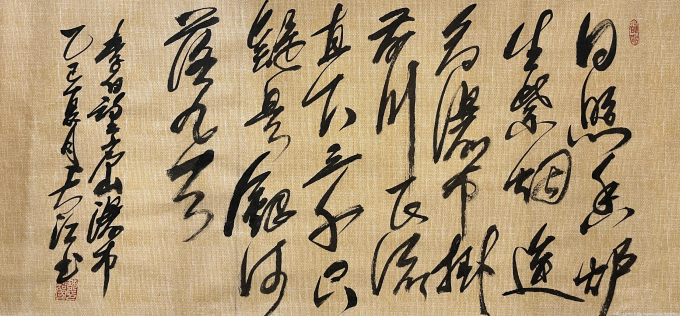 日照香炉
生紫烟遥
看瀑布掛
前川飞流
直下三千尺
疑是銀河
落九天
李白望庐山瀑布
乙巳夏月大江书